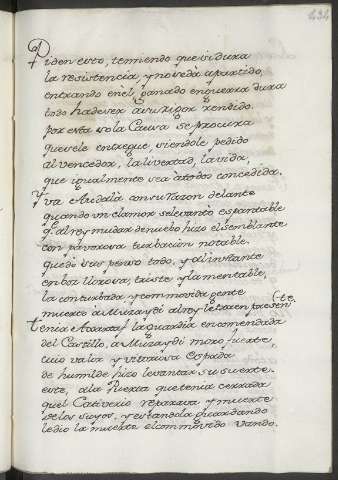 434
Piden esto, temiendo que si dura
la resistencia, y no se dà a partido,
entrando en el, ganado en guerra dura
todo ha de ser a su rigor rendido.
por esta sola Causa se procura
que se le entregue, siendole pedido
al vencedor, la livertad, la vida,
que igualmente sea a todos concedida.
Yva Audalà con su razon delante
quando vn clamor se levantò espantable
q. al rey mudar de nuebo hizo el semblante
con pavorosa turbacion notable.
quedò suspenso todo, y al instante
en boz llorosa, triste y lamentable,
la conturbada y commovida gente
muerto a Muzaydi al rey le traen presen-
te.
tenia la guardia encomendada
del Castillo, a Muzaydi moro fuerte,
cuio valor y vitoriosa Espada
de humilde hizo levantar su suerte.
este, a la Puerta que tenia cerrada
quel Cativerio reparava y muerte
de los suyos, y estandola guardando
le dio la muerte el commovido vando.